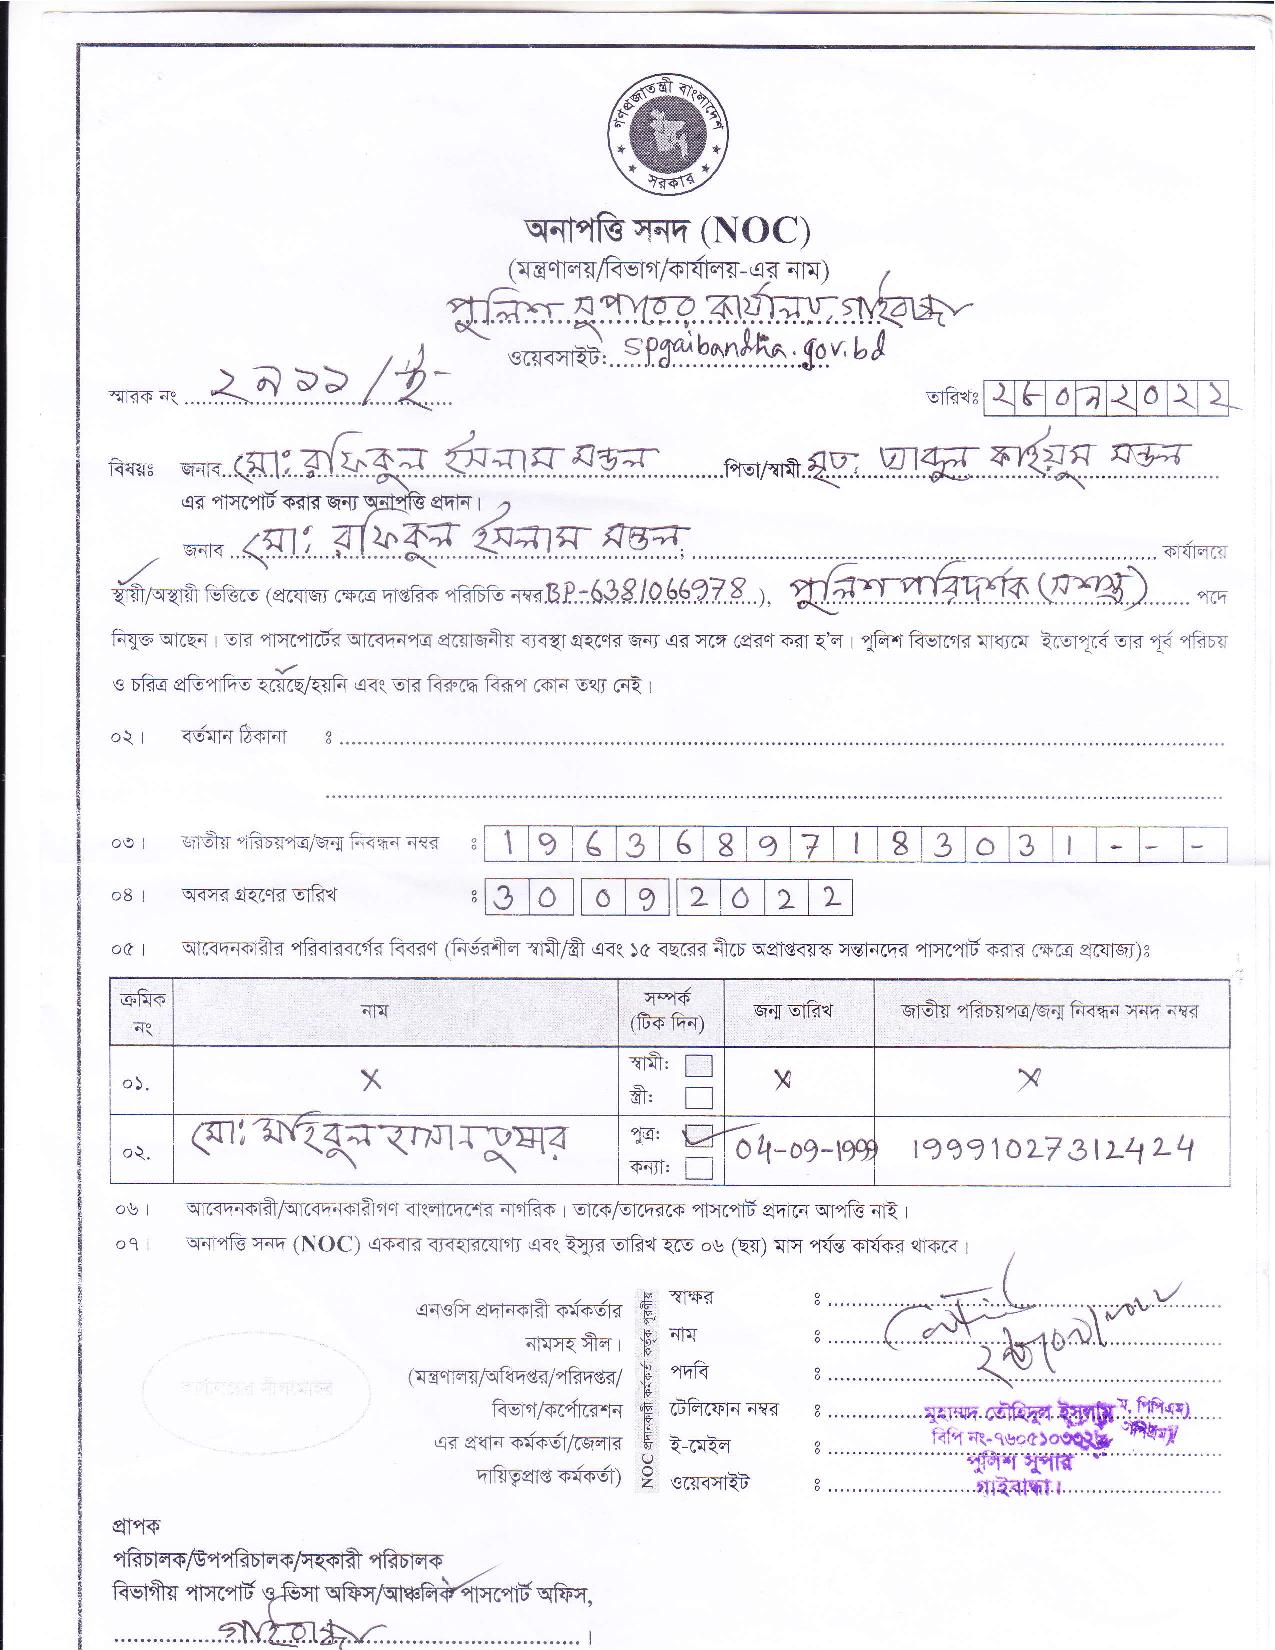 গণপ্রজাতন্ত্রী বাংলাদেশ
সরকার
অনাপত্তি সনদ (NOC)
(মন্ত্রণালয়/বিভাগ/কার্যালয়-এর নাম)
পুলিশ সুপারের কার্যালয়, গাইবান্ধা
ওয়েবসাইট: spgaibandha.gov.bd
স্মারক নং ২৯১১/ই তারিখঃ ২৮০৯২০২২
বিষয়ঃ জনাব মো: রফিকুল ইসলাম মন্ডল পিতা/স্বামী মৃত. আব্দুল কাইয়ুম মন্ডল
এর পাসপোর্ট করার জন্য অনাপত্তি প্রদান।
জনাব মো: রফিকুল ইসলাম মন্ডল, কার্যালয়ে
স্থায়ী/অস্থায়ী ভিত্তিতে (প্রযোজ্য ক্ষেত্রে দাপ্তরিক পরিচিতি নম্বর BP-6381066978), পুলিশ পরিদর্শক (সশস্ত্র) পদে
নিযুক্ত আছেন। তার পাসপোর্টের আবেদনপত্র প্রয়োজনীয় ব্যবস্থা গ্রহণের জন্য এর সঙ্গে প্রেরণ করা হ'ল। পুলিশ বিভাগের মাধ্যমে ইতোপূর্বে তার পূর্ব পরিচয়
ও চরিত্র প্রতিপাদিত হয়েছে/হয়নি এবং তার বিরুদ্ধে বিরূপ কোন তথ্য নেই।
০২। বর্তমান ঠিকানা ঃ
০৩। জাতীয় পরিচয়পত্র/জন্ম নিবন্ধন নম্বর ঃ 19636897183031---
০৪। অবসর গ্রহণের তারিখ ঃ 30 09 2022
০৫। আবেদনকারীর পরিবারবর্গের বিবরণ (নির্ভরশীল স্বামী/স্ত্রী এবং ১৫ বছরের নীচে অপ্রাপ্তবয়স্ক সন্তানদের পাসপোর্ট করার ক্ষেত্রে প্রযোজ্য)ঃ
ক্রমিক নং নাম সম্পর্ক (টিক দিন) জন্ম তারিখ জাতীয় পরিচয়পত্র/জন্ম নিবন্ধন সনদ নম্বর
০১. X স্বামী: X X
স্ত্রী:
০২. মো: মহিবুল হাসান তুষার পুত্র: 04-09-1999 19991027312424
কন্যা:
০৬। আবেদনকারী/আবেদনকারীগণ বাংলাদেশের নাগরিক। তাকে/তাদেরকে পাসপোর্ট প্রদানে আপত্তি নাই।
০৭। অনাপত্তি সনদ (NOC) একবার ব্যবহারযোগ্য এবং ইস্যুর তারিখ হতে ০৬ (ছয়) মাস পর্যন্ত কার্যকর থাকবে।
কার্যালয়ের সীলমোহর
এনওসি প্রদানকারী কর্মকর্তার
নামসহ সীল।
(মন্ত্রণালয়/অধিদপ্তর/পরিদপ্তর/
বিভাগ/কর্পোরেশন
এর প্রধান কর্মকর্তা/জেলার
দায়িত্বপ্রাপ্ত কর্মকর্তা)
NOC প্রদানকারী কর্মকর্তা কর্তৃক পূরণীয়
স্বাক্ষর ঃ
নাম ঃ
পদবি ঃ
টেলিফোন নম্বর ঃ
ই-মেইল ঃ
ওয়েবসাইট ঃ
মুহাম্মদ তৌহিদুল ইসলাম
বিপি নং-
পুলিশ সুপার
গাইবান্ধা।
প্রাপক
পরিচালক/উপপরিচালক/সহকারী পরিচালক
বিভাগীয় পাসপোর্ট ও ভিসা অফিস/আঞ্চলিক পাসপোর্ট অফিস,
গাইবান্ধা।